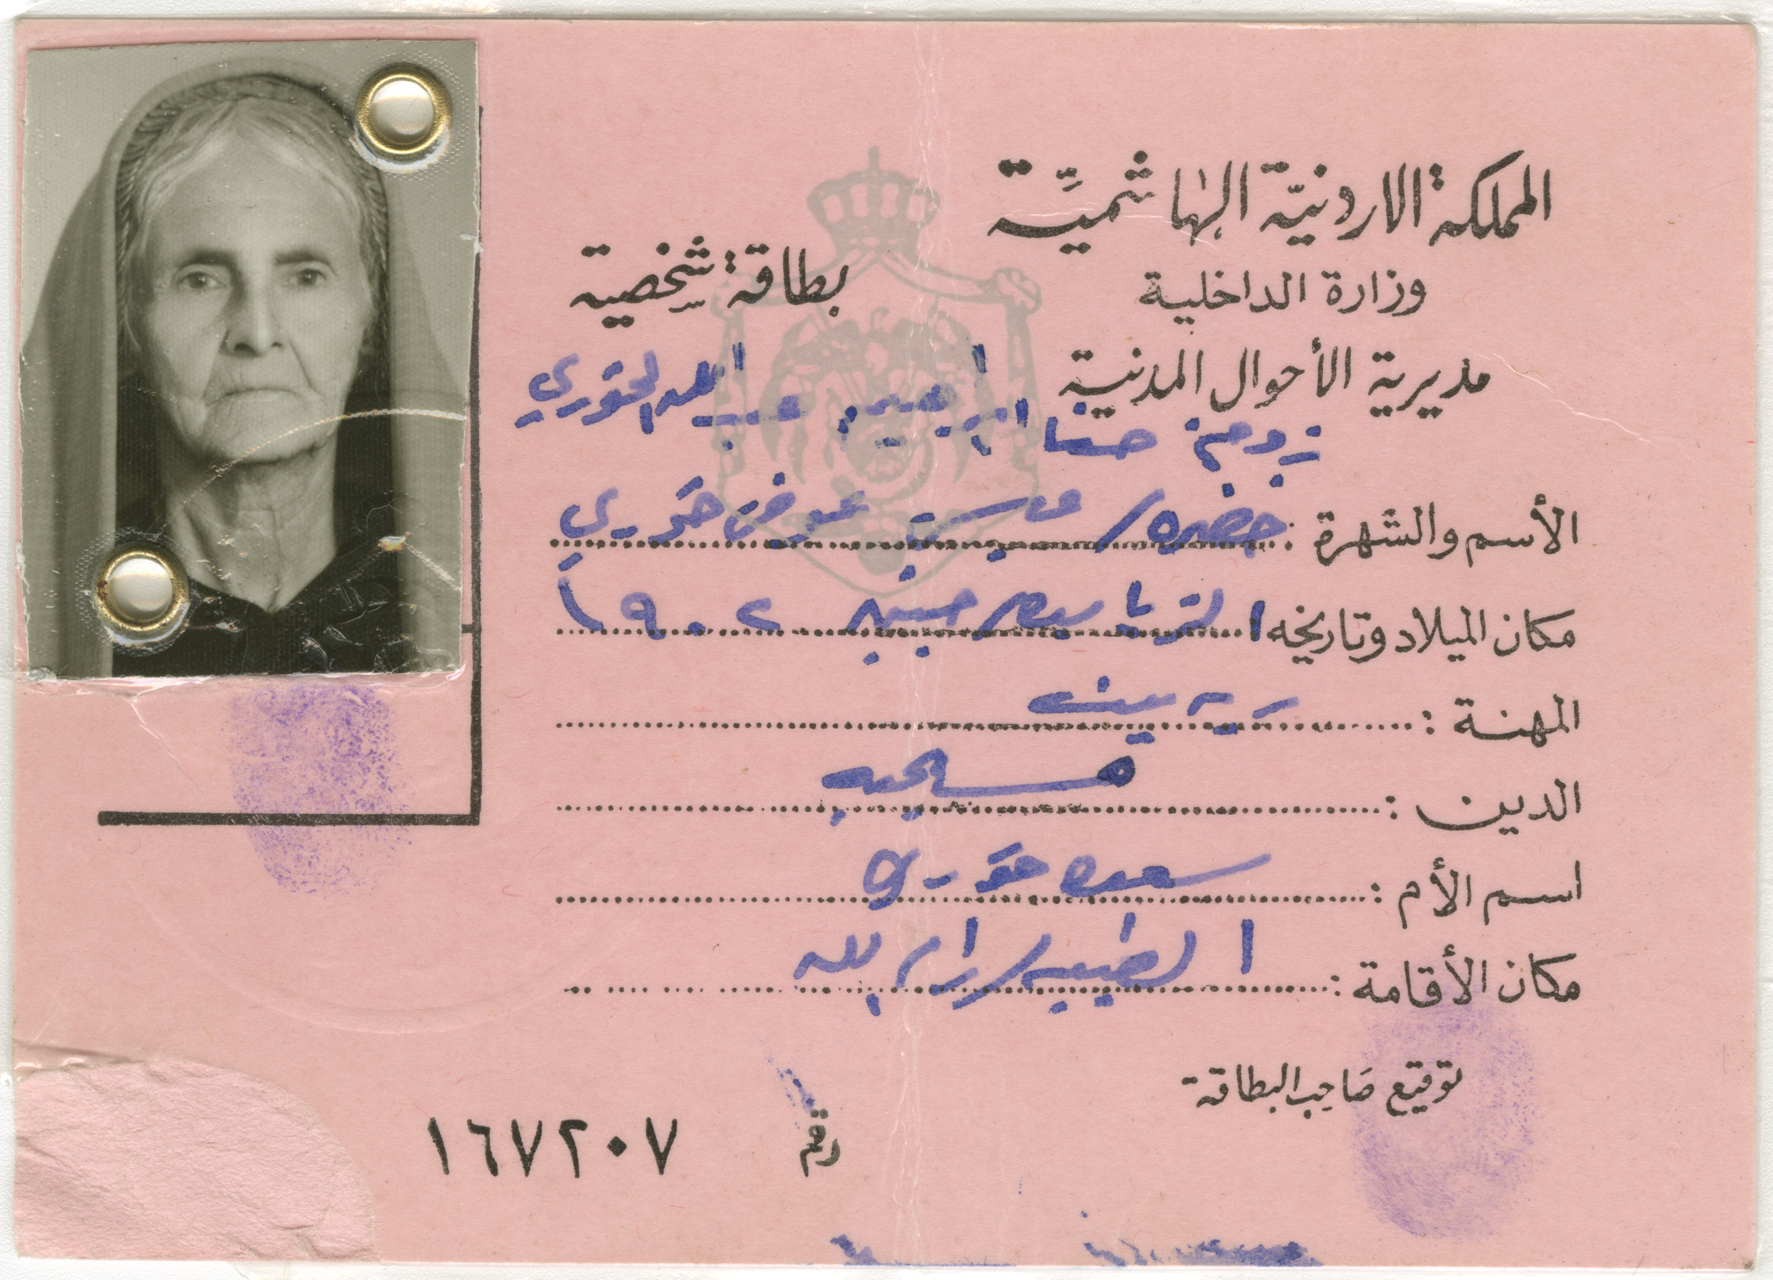 المملكة الاردنيّة الهاشميّة
وزارة الداخلية
بطاقة شخصية
مديرية الأحوال المدنية
زوجة حنا ابراهيم عبدالله الخوري
الأسم والشهرة : خضره / عوض خوري
مكان الميلاد وتاريخه ١٩٠٢
المهنة : ربة بيت
الدين : مسيحيه
اسم الأم : سعده خوري
مكان الأقامة : الطيبه / رام الله
توقيع صاحب البطاقة
رقم ١٦٧٢٠٧